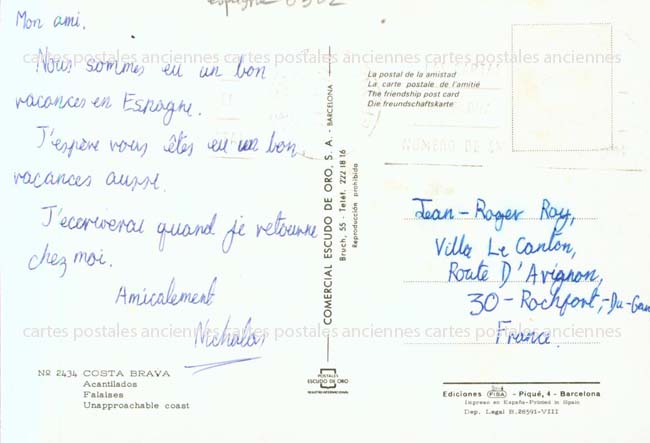 espagne
Mon ami.
Nous sommes eu un bon
vacances en Espagne.
J'espère vous êtes eu un bon
vacances aussi.
J'ecriverai quand je retourne
chez moi.
Amicalement
Nicholas
cartes postales anciennes cartes postales anciennes cartes postales anciennes
Nº 2434 COSTA BRAVA
Acantilados
Falaises
Unapproachable coast
COMERCIAL ESCUDO DE ORO, S. A. - BARCELONA -
Bruch, 55 - Teléf. 222 18 16
Reproducción prohibida
POSTALES
ESCUDO DE ORO
La postal de la amistad
La carte postale de l'amitié
The friendship post card
Die freundschaftskarte
NUMERO DE
Jean-Roger Roy,
Villa Le Canton,
Route D'Avignon,
30-Rochfort,-Du-Gard
France.
cartes postales anciennes cartes postales anciennes cartes postales anciennes
Ediciones FISA - Piqué, 4 - Barcelona
Impreso en España-Printed in Spain
Dep. Legal B. 28591-VIII